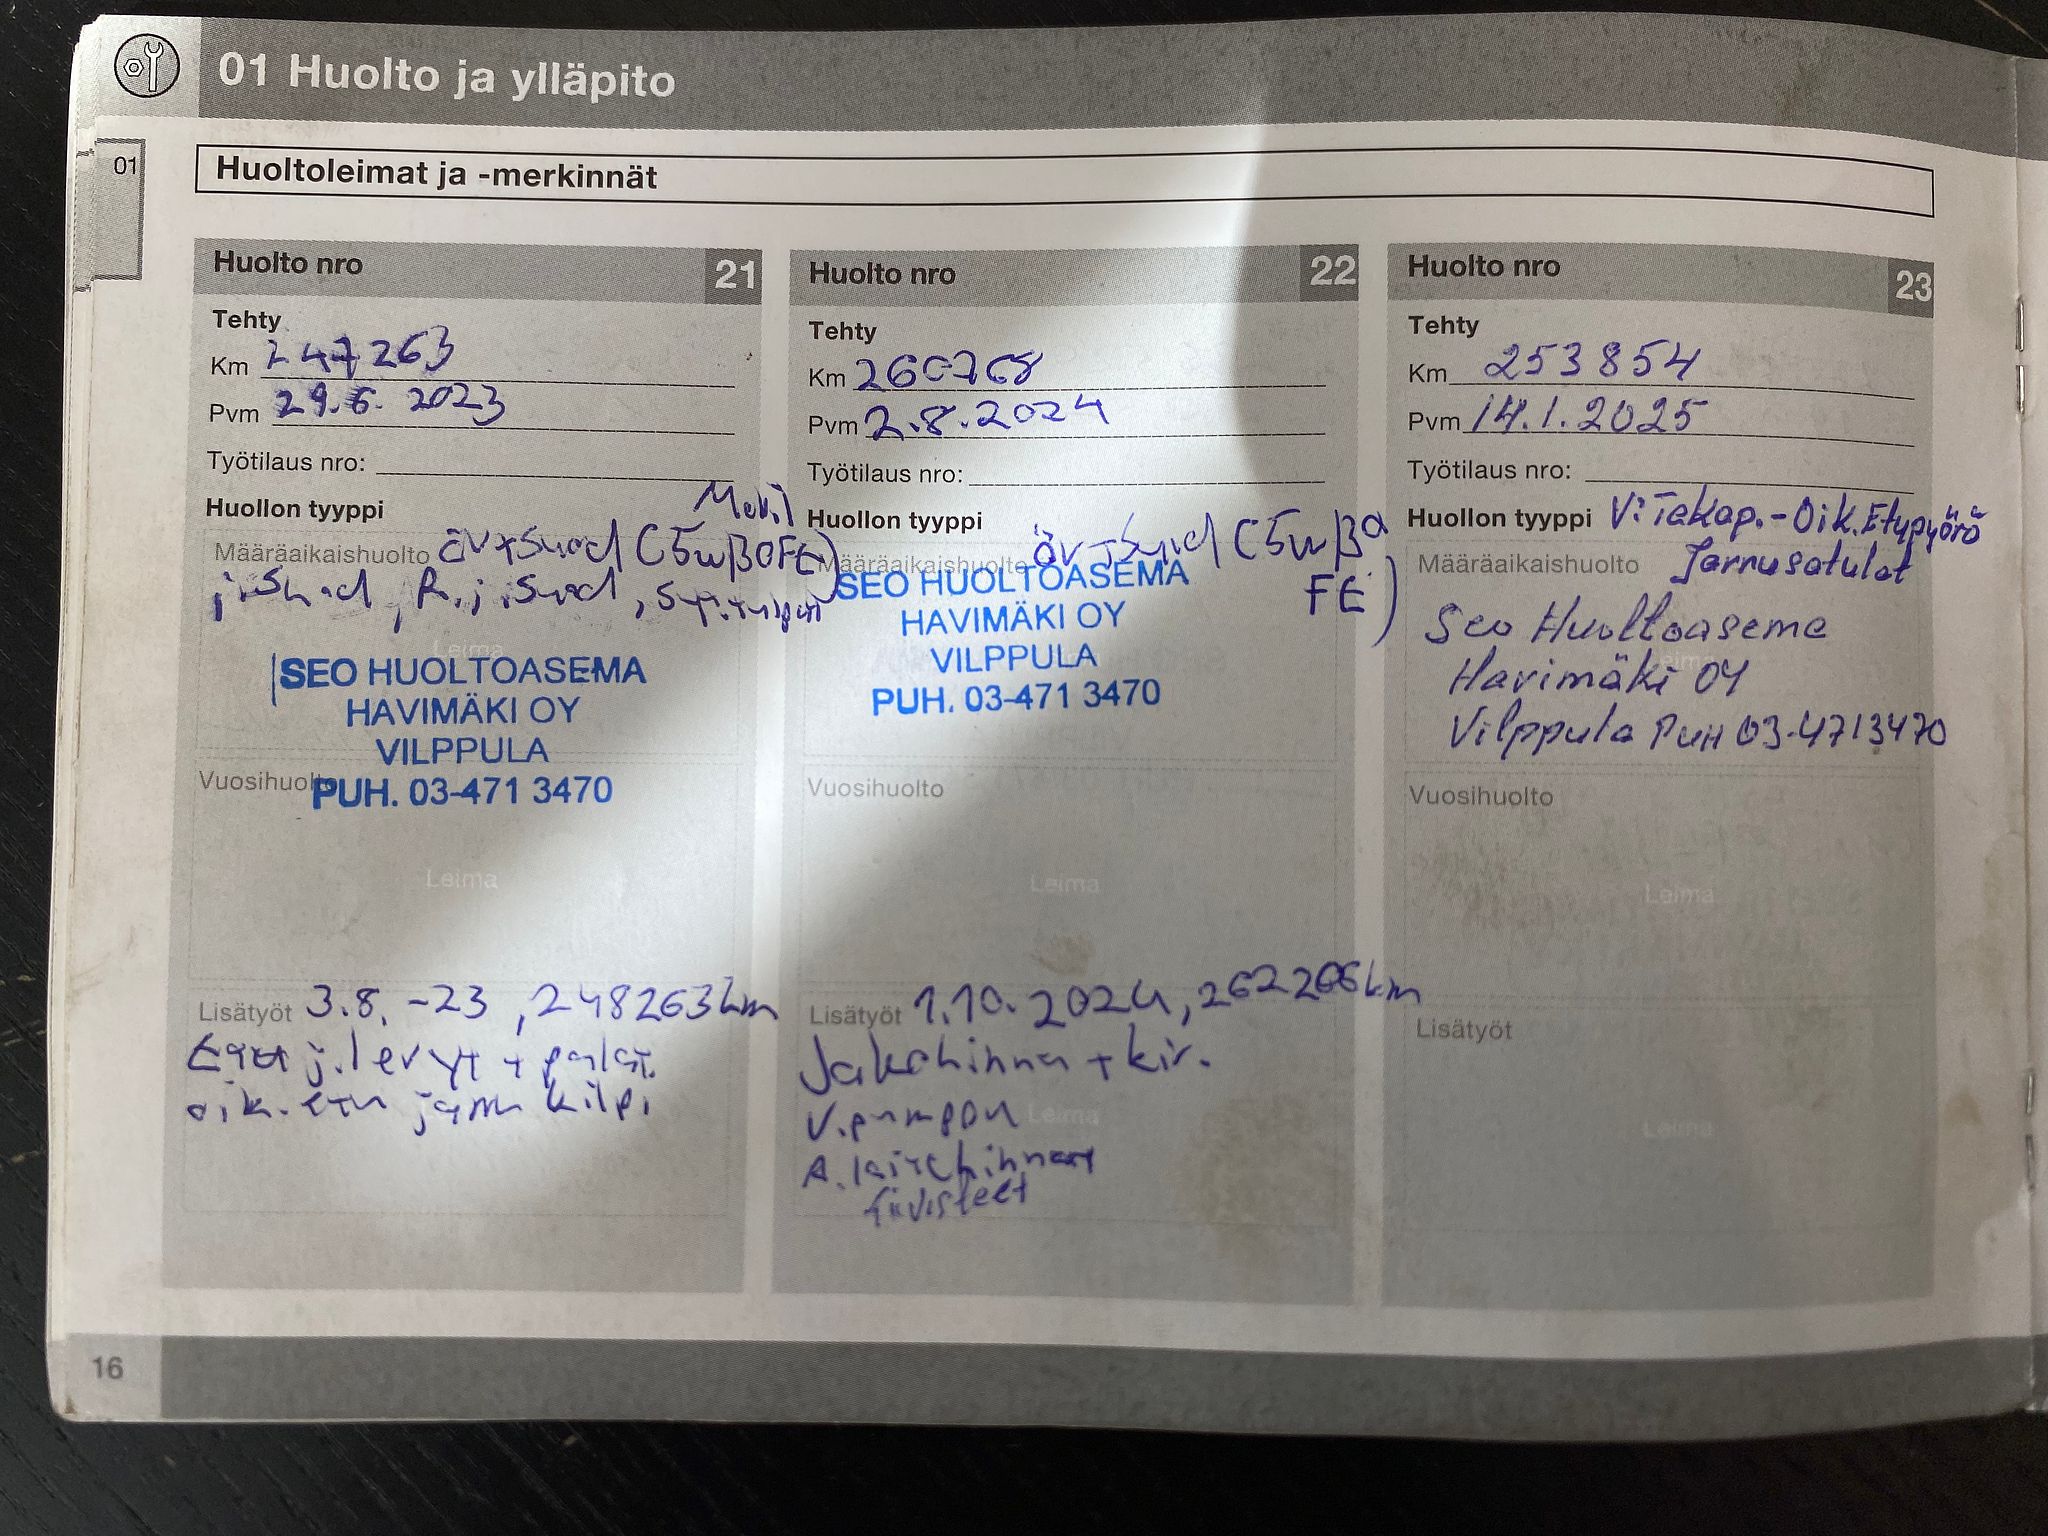 01 Huolto ja ylläpito
01
Huoltoleimat ja -merkinnät
Huolto nro 21
Tehty
Km 247263
Pvm 29.6. 2023
Työtilaus nro:
Huollon tyyppi
Määräaikaishuolto öv+suod (5w30FE)
j.suod, R.j.suod,
Leima
SEO HUOLTOASEMA
HAVIMÄKI OY
VILPPULA
PUH. 03-471 3470
Vuosihuolto
Leima
Lisätyöt 3.8. -23, 248263km
j.levyt + palat.
oik. etu jarru kilpi
Huolto nro 22
Tehty
Km 260768
Pvm 2.8.2024
Työtilaus nro:
Huollon tyyppi
Määräaikaishuolto öv+suod (5w30
FE)
SEO HUOLTOASEMA
HAVIMÄKI OY
VILPPULA
PUH. 03-471 3470
Vuosihuolto
Leima
Lisätyöt 1.10.2024, 262266km
Jakohihna + kir.
V.pumppu
Leima
A.laitehihna
tiivisteet
Huolto nro 23
Tehty
Km 253854
Pvm 14.1.2025
Työtilaus nro:
Huollon tyyppi V: Takap.-Oik.Etupyörä
Määräaikaishuolto Jarrusatulat
Seo Huoltoasema
Leima
Havimäki OY
Vilppula PUH 03-4713470
Vuosihuolto
Leima
Lisätyöt
Leima
16